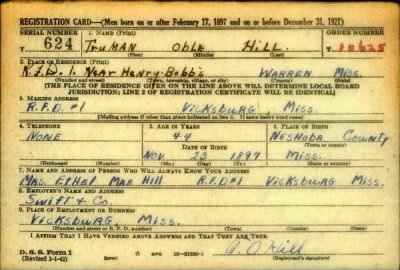 REGISTRATION CARD—(Men born on or after February 17, 1897 and on or before December 31, 1921)
SERIAL NUMBER 1. NAME (Print) ORDER NUMBER
T 624 TRUMAN Oble Hill. T 10625
(First) (Middle) (Last)
2. PLACE OF RESIDENCE (Print)
R.F.D. 1 Near Henry Bobb's WARREN Miss.
(Number and street) (Town, township, village, or city) (County) (State)
[THE PLACE OF RESIDENCE GIVEN ON THE LINE ABOVE WILL DETERMINE LOCAL BOARD
JURISDICTION; LINE 2 OF REGISTRATION CERTIFICATE WILL BE IDENTICAL]
3. MAILING ADDRESS
R.F.D. #1 Vicksburg Miss.
[Mailing address if other than place indicated on line 2. If same insert word same]
4. TELEPHONE 5. AGE IN YEARS 6. PLACE OF BIRTH
NONE 44 NESHOBA County
DATE OF BIRTH
Nov 23 1897 Miss.
(Exchange) (Number) (Mo.) (Day) (Yr.) (State or country)
7. NAME AND ADDRESS OF PERSON WHO WILL ALWAYS KNOW YOUR ADDRESS
Mrs. Ethel Mae Hill R.F.D #1 Vicksburg Miss.
8. EMPLOYER'S NAME AND ADDRESS
Swift & Co.
9. PLACE OF EMPLOYMENT OR BUSINESS
Vicksburg, Miss.
(Number and street or R. F. D. number) (Town) (County) (State)
I AFFIRM THAT I HAVE VERIFIED ABOVE ANSWERS AND THAT THEY ARE TRUE.
D. S. S. Form 1
(Revised 1-1-42) (over) GPO 16—21630-1 Hill
(Registrant's signature)